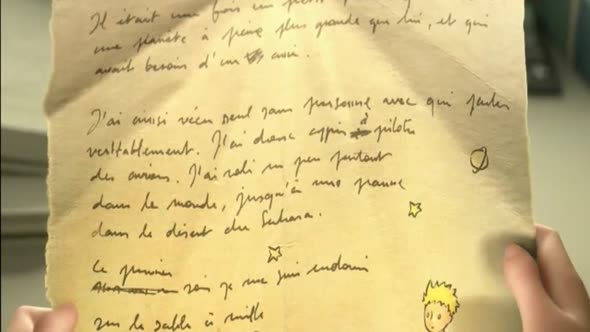 Il était une fois un petit p
une planète à peine plus grande que lui, et qui
avait besoin d'un ami.
J'ai ainsi vécu seul sans personne avec qui parler
véritablement. J'ai donc appris à piloter
des avions. J'ai volé un peu partout
dans le monde, jusqu'à une panne
dans le désert du Sahara.
Le premier
soir je me suis endormi
sur le sable à mille